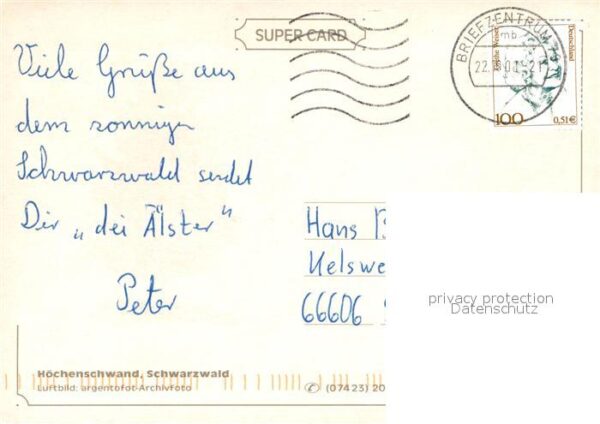 SUPER CARD
BRIEFZENTRUM
mb
Deutschland
100
0,51€
Viele Grüße aus
dem sonnigen
Schwarzwald sendet
Dir „dei Älster"
Peter
Hans
Kelswe
66606
privacy protection
Datenschutz
Höchenschwand, Schwarzwald
Luftbild: argentofot-Archivfoto
(07423) 20